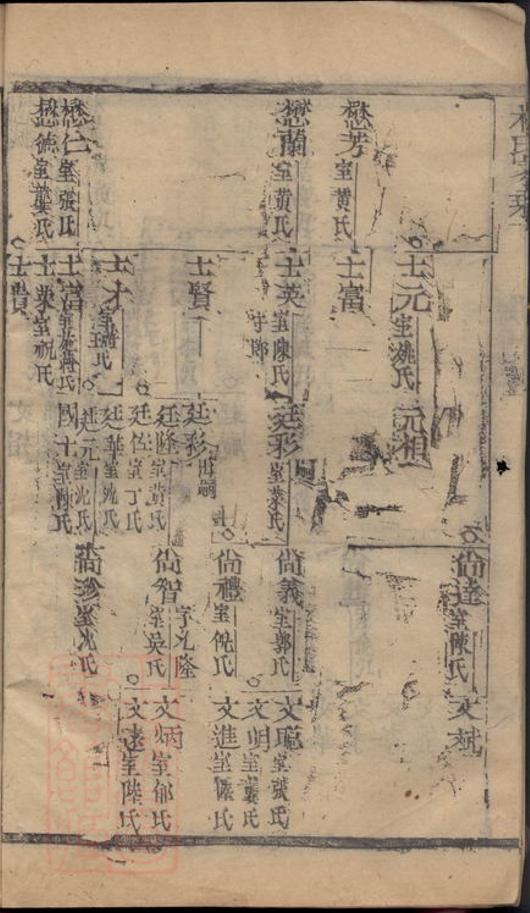 懋芳 室黄氏
懋蘭 室黄氏
懋仁 室張氏
懋德 室龔氏
士元 室姚氏
士富
士英 室陳氏
士賢
士才
士富
士榮 室祝氏
士賢
元祖
廷彩 室葉氏
廷彩 出嗣
廷隆 室黄氏
廷佐 室丁氏
廷華 室沈氏
廷元 室沈氏
國士 室陳氏
尚達 室陳氏
尚義 室郭氏
尚禮 室倪氏
尚智 字九隆 室吳氏
尚珍 室沈氏
文斌
文聪 室張氏
文明 室龔氏
文進 室陸氏
文炳 室郁氏
文遠 室陸氏